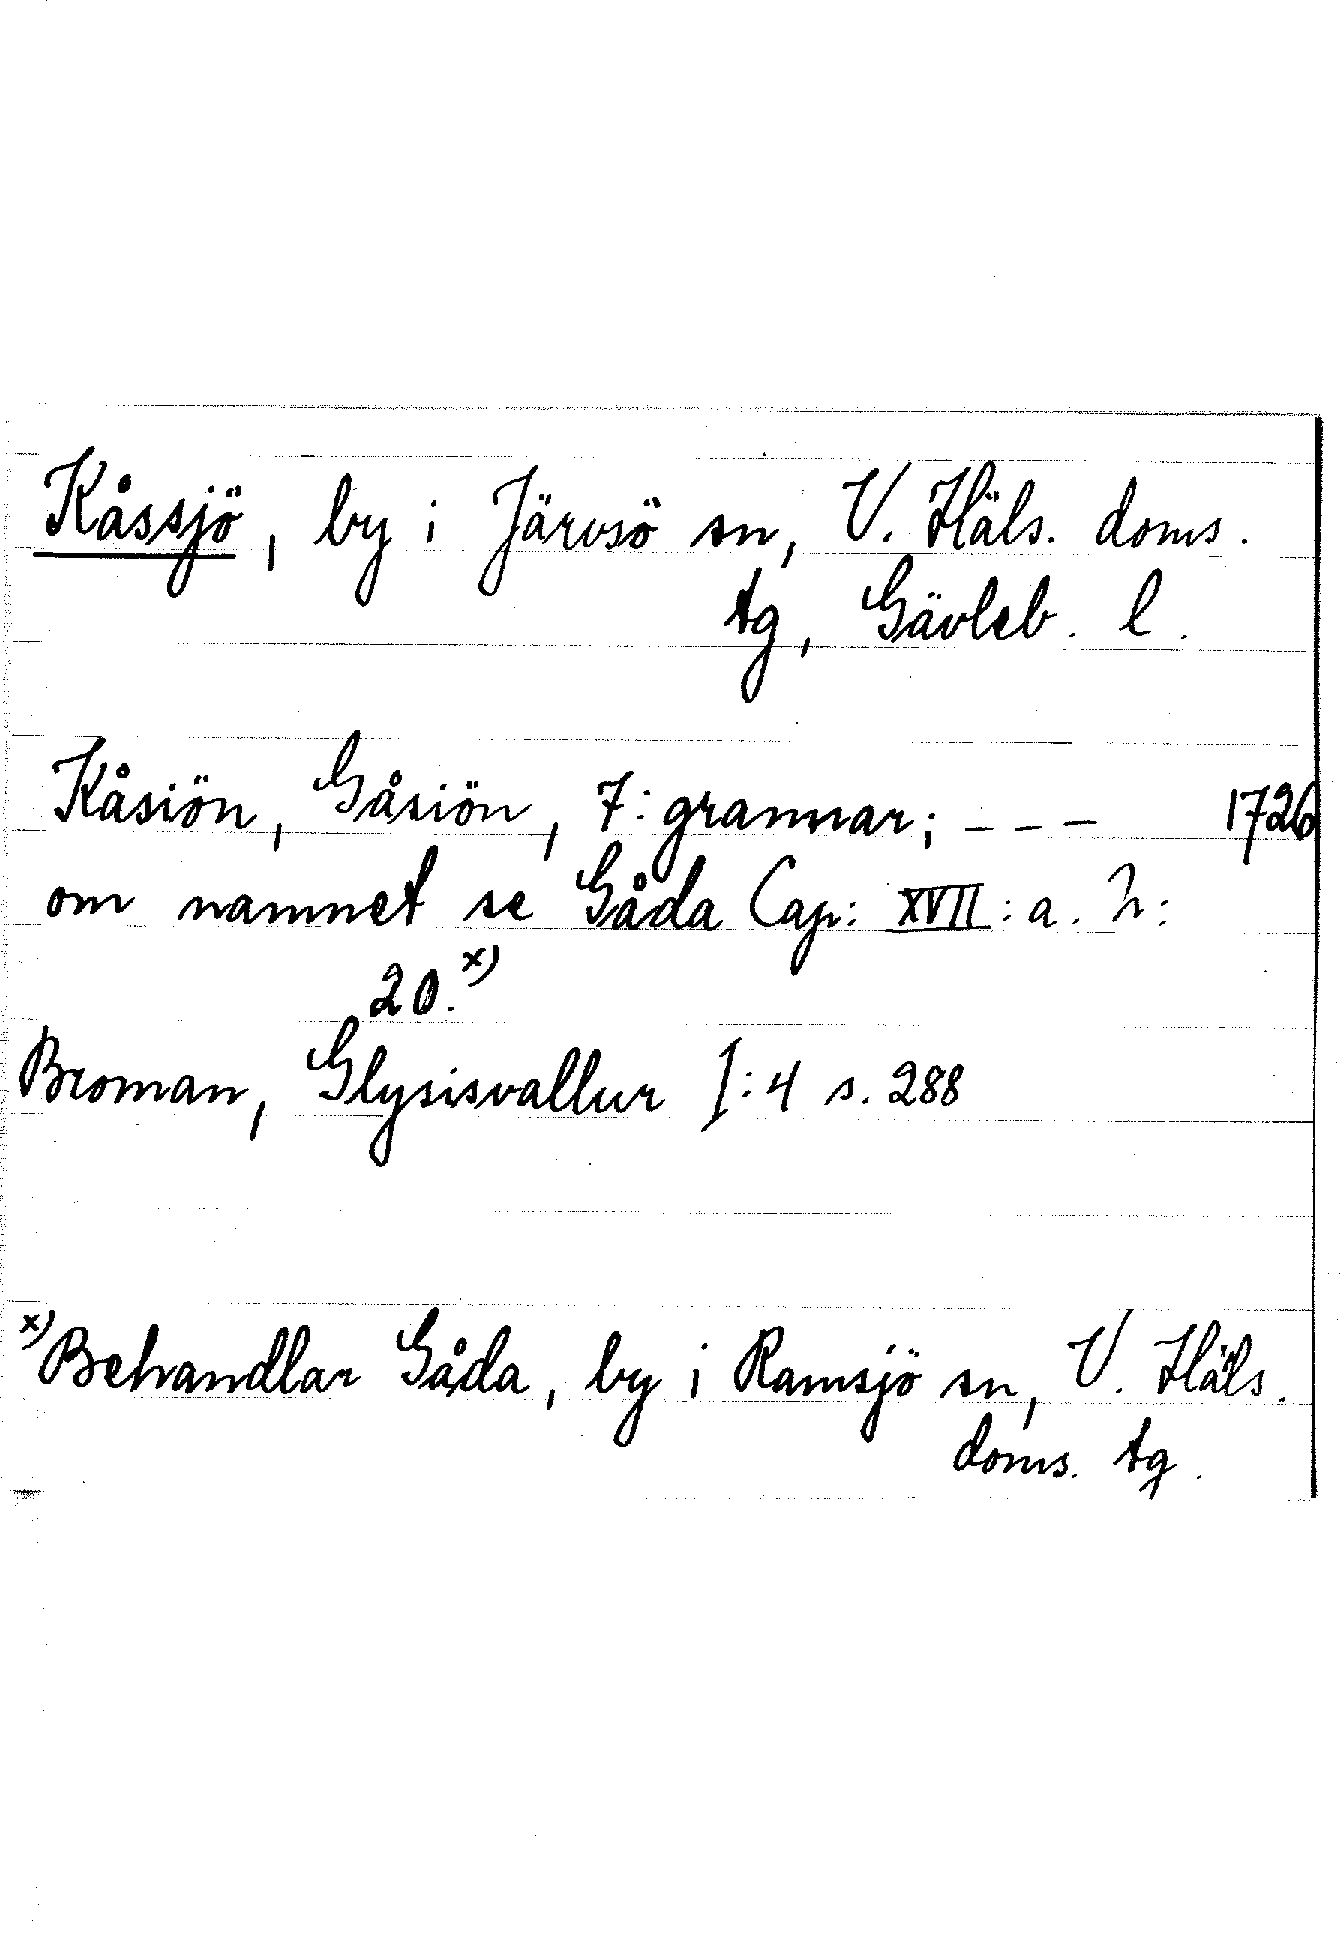 Kåssjö, by i Järvsö sn, V. Häls. doms.
tg, Gävleb. l.
Kåsiön, Gåsiön, 7: grannar; - - - 1726
om namnet se Gåda Cap: XVII: a. n:
20.x)
Broman, Glysisvallur I:4 s. 288
x) Behandlar Gåda, by i Ramsjö sn, V. Häls.
doms. tg.